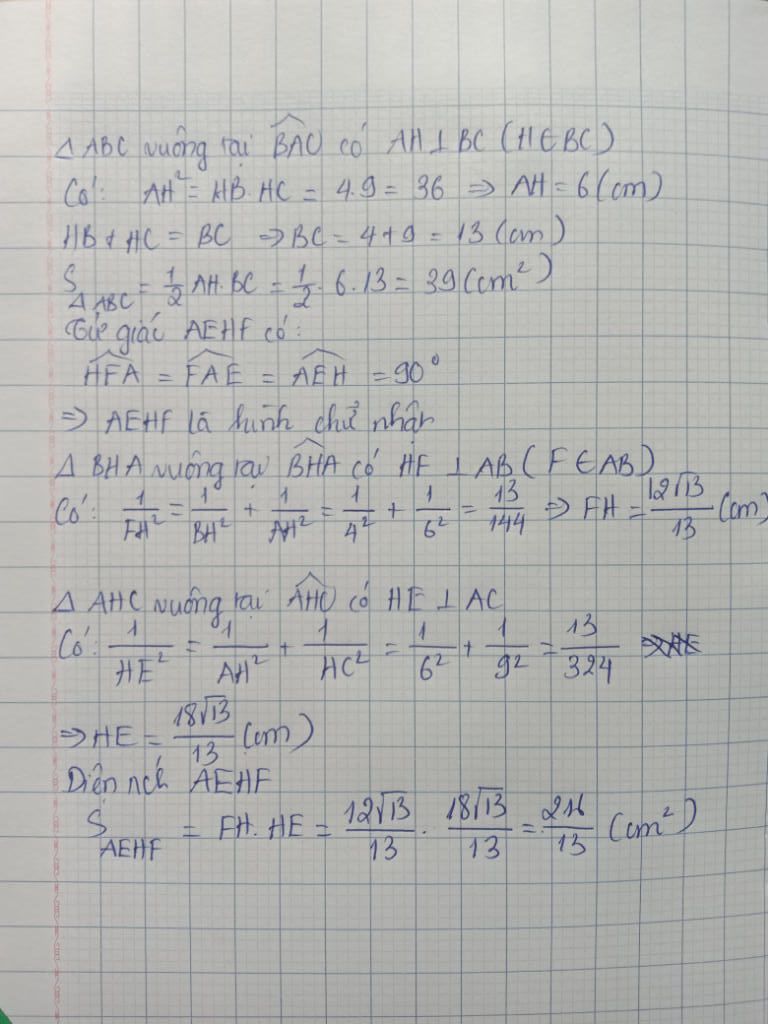 Δ ABC vuông tại $\widehat{BAC}$ có AH ⊥ BC (H ∈ BC)
Có: AH² = HB.HC = 4.9 = 36 ⇒ AH = 6 (cm)
HB + HC = BC ⇒ BC = 4 + 9 = 13 (cm)
$S_{ΔABC} = \frac{1}{2} AH.BC = \frac{1}{2}.6.13 = 39 (cm^2)$
Tứ giác AEHF có:
$\widehat{HFA} = \widehat{FAE} = \widehat{AEH} = 90^0$
⇒ AEHF là hình chữ nhật
Δ BHA vuông tại $\widehat{BHA}$ có HF ⊥ AB (F ∈ AB)
Có: $\frac{1}{FH^2} = \frac{1}{BH^2} + \frac{1}{AH^2} = \frac{1}{4^2} + \frac{1}{6^2} = \frac{13}{144} ⇒ FH = \frac{12\sqrt{13}}{13} (cm)$
Δ AHC vuông tại $\widehat{AHC}$ có HE ⊥ AC
Có: $\frac{1}{HE^2} = \frac{1}{AH^2} + \frac{1}{HC^2} = \frac{1}{6^2} + \frac{1}{9^2} = \frac{13}{324}$
⇒ $HE = \frac{18\sqrt{13}}{13} (cm)$
Diện tích AEHF
$S_{AEHF} = FH.HE = \frac{12\sqrt{13}}{13}.\frac{18\sqrt{13}}{13} = \frac{216}{13} (cm^2)$